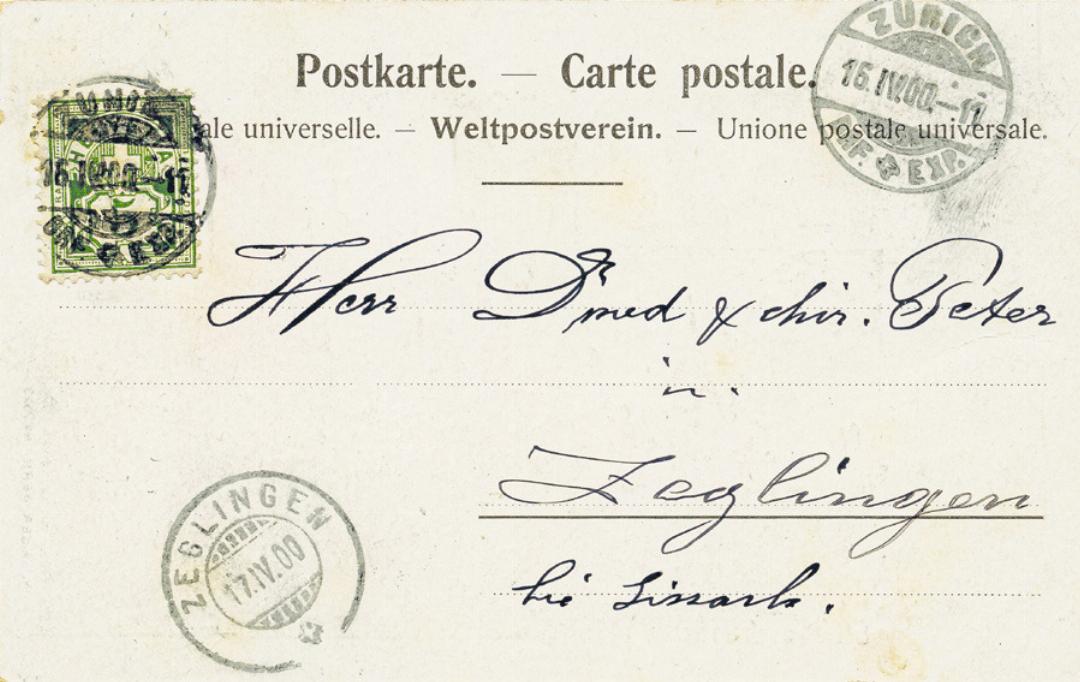 Postkarte. — Carte postale.
ale universelle. — Weltpostverein. — Unione postale universale.
ZÜRICH
16.IV.00.–11
BRF. EXP.
16.IV.00.–11
EXP.
Herr Dr med & chir. Peter
in.
Zeglingen
bei Sissach.
ZEGLINGEN
17.IV.00